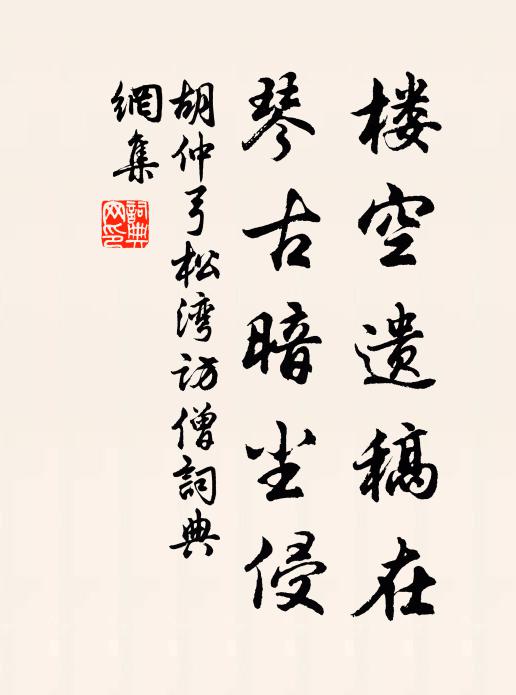 楼空遗稿在
琴古暗尘侵
胡仲弓松湾访僧詞典
網集
詞典網印